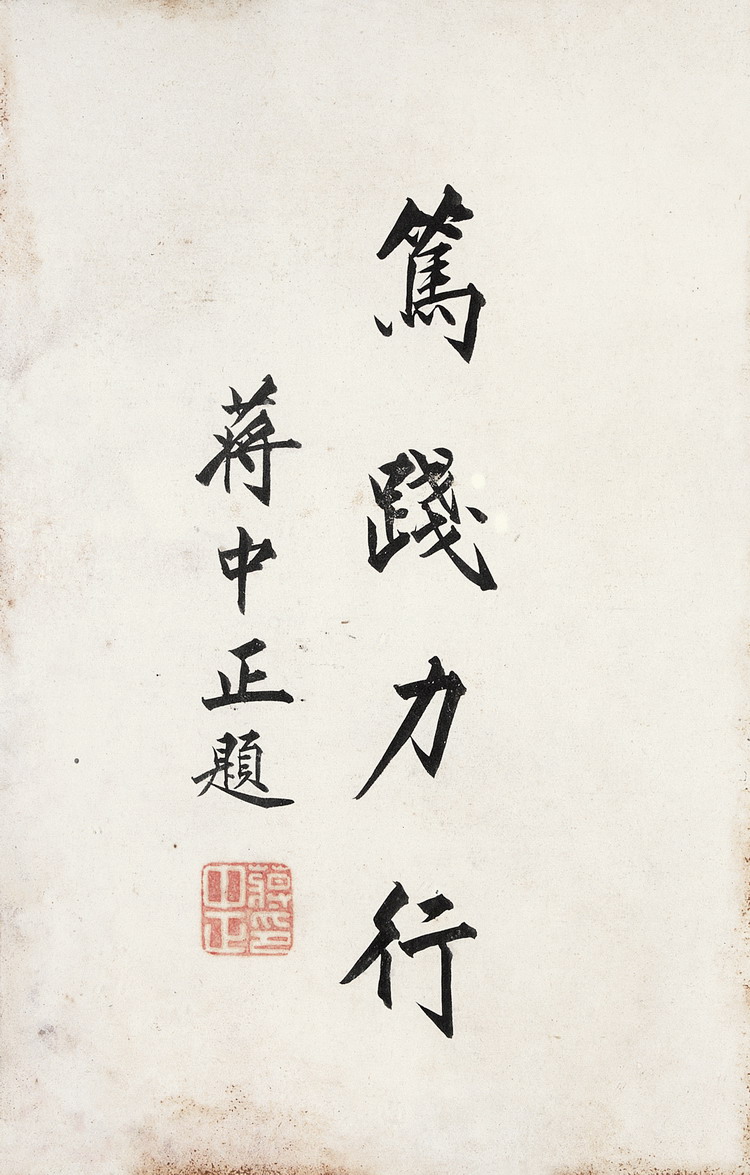 篤踐力行
蔣中正題
蔣中正印